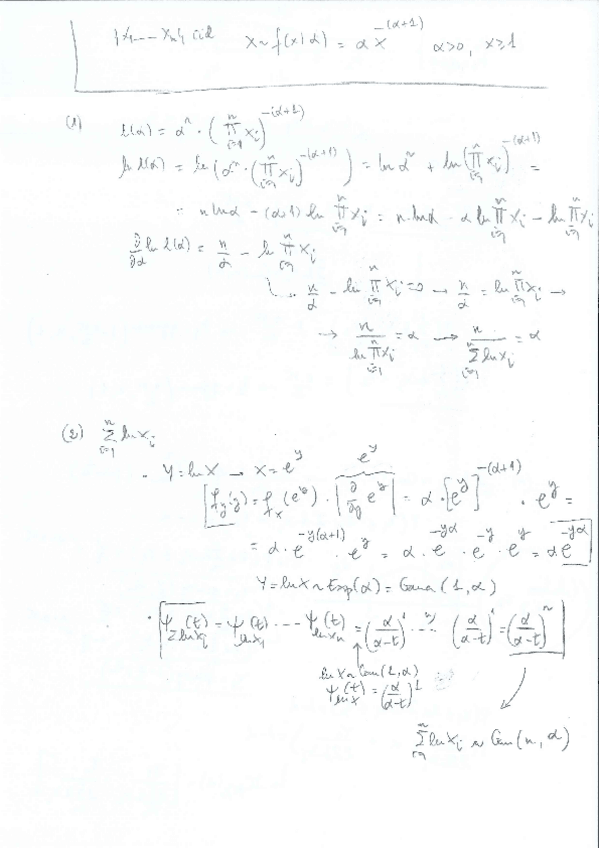 {X₁ --- Xₙ} iid X ~ f(x|α) = α x^{-(α+1)} α>0, x≥1
(1) L(α) = αⁿ · (∏_{i=1}^{n} x_i)^{-(α+1)}
ln L(α) = ln(αⁿ · (∏_{i=1}^{n} x_i)^{-(α+1)}) = ln αⁿ + ln(∏_{i=1}^{n} x_i)^{-(α+1)} =
= n ln α - (α+1) ln ∏_{i=1}^{n} x_i = n·ln α - α ln ∏_{i=1}^{n} x_i - ln ∏_{i=1}^{n} x_i
∂/∂α ln L(α) = n/α - ln ∏_{i=1}^{n} x_i
n/α - ln ∏_{i=1}^{n} x_i = 0 → n/α = ln ∏_{i=1}^{n} x_i →
→ n / ln ∏_{i=1}^{n} x_i = α → n / ∑_{i=1}^{n} ln x_i = α
(2) ∑_{i=1}^{n} ln x_i
· Y = ln X → X = e^y
e^y
f_y(y) = f_x(e^y) · |∂/∂y e^y| = α · [e^y]^{-(α+1)} · e^y =
= α · e^{-y(α+1)} · e^y = α · e^{-yα} · e^{-y} · e^y = α e^{-yα}
Y = ln X ~ Exp(α) = Gama (1, α)
· ψ_{∑ ln x_i}(t) = ψ_{ln x₁}(t) --- ψ_{ln xₙ}(t) = (α/(α-t))¹ --- (α/(α-t))¹ = (α/(α-t))ⁿ
ln X ~ Gam(1, α)
ψ_{ln x}(t) = (α/(α-t))¹
∑_{i=1}^{n} ln x_i ~ Gam(n, α)